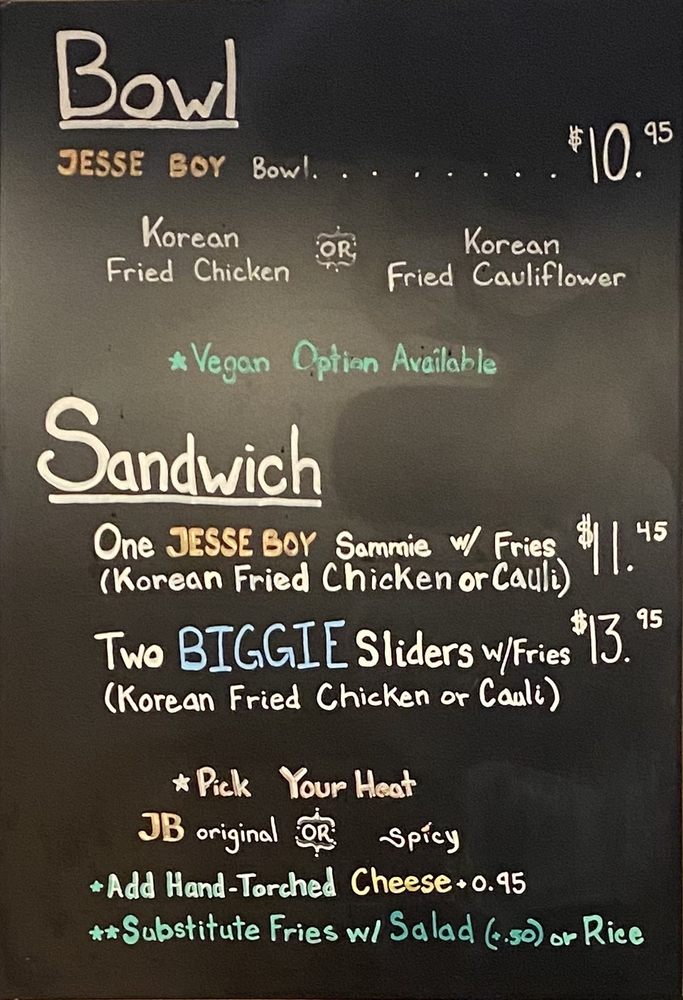 Bowl
JESSE BOY Bowl. . . . . . . . . $10.95
Korean Fried Chicken OR Korean Fried Cauliflower
*Vegan Option Available
Sandwich
One JESSE BOY Sammie w/ Fries $11.45
(Korean Fried Chicken or Cauli)
Two BIGGIE Sliders w/Fries $13.95
(Korean Fried Chicken or Cauli)
*Pick Your Heat
JB original OR Spicy
*Add Hand-Torched Cheese +0.95
**Substitute Fries w/ Salad (+.50) or Rice